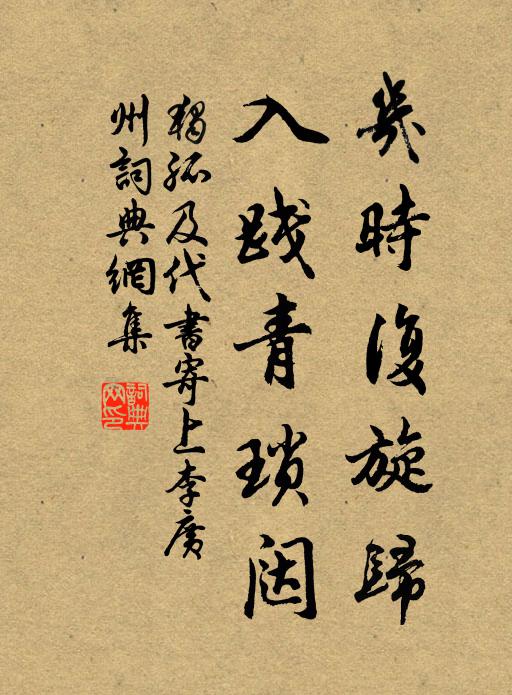 幾時復旋歸
入踐青瑣闼
獨孤及代書寄上李廣
州詞典網集
詞典
网印